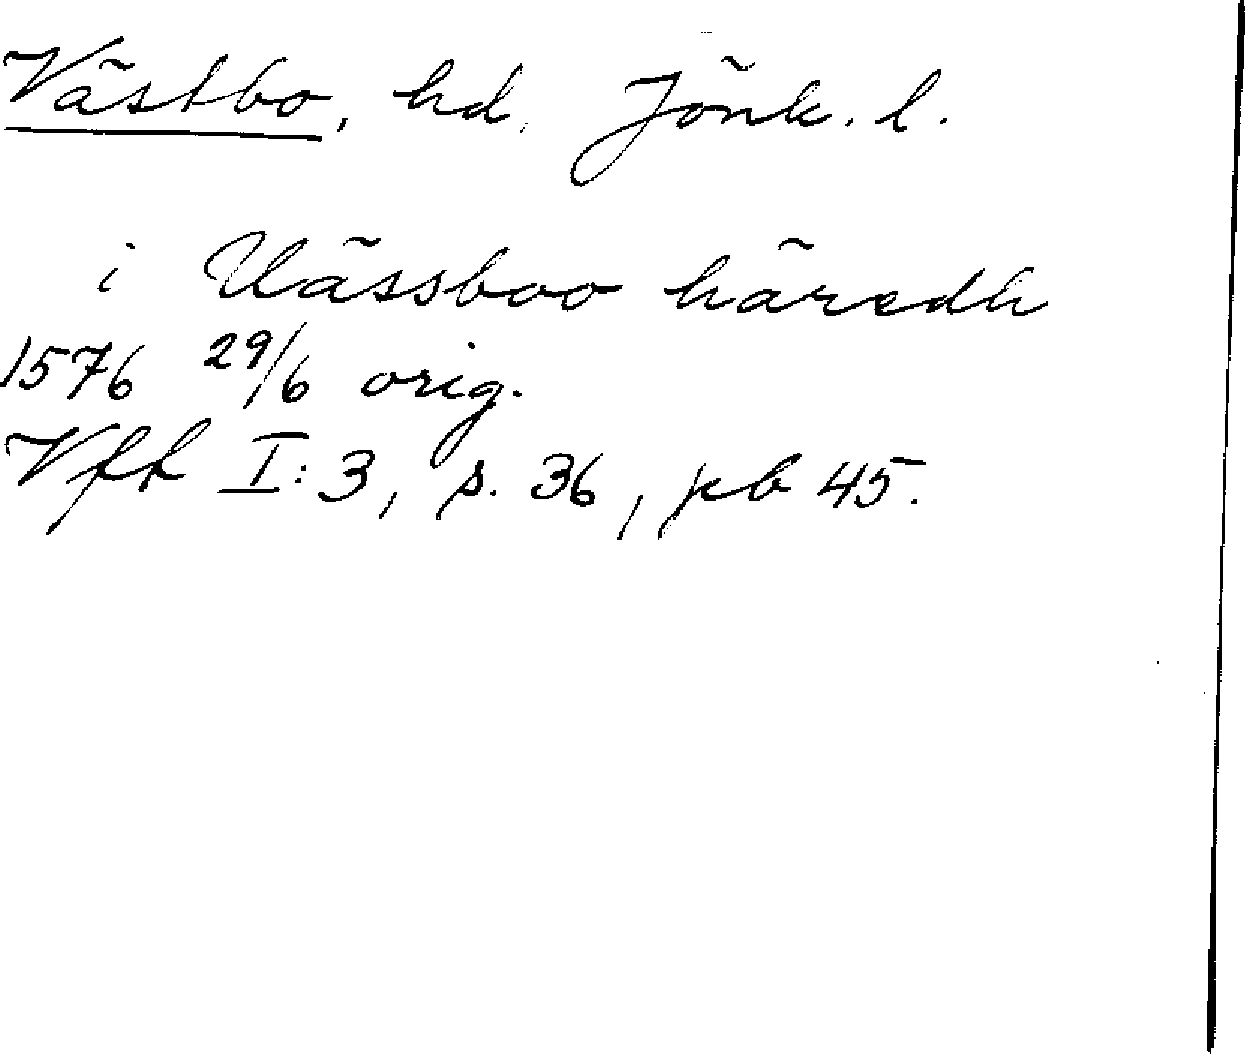 Västbo, hd, Jönk. l.
i Uässboo häredh
1576 29/6 orig.
Vfh I:3, s. 36, pb 45.